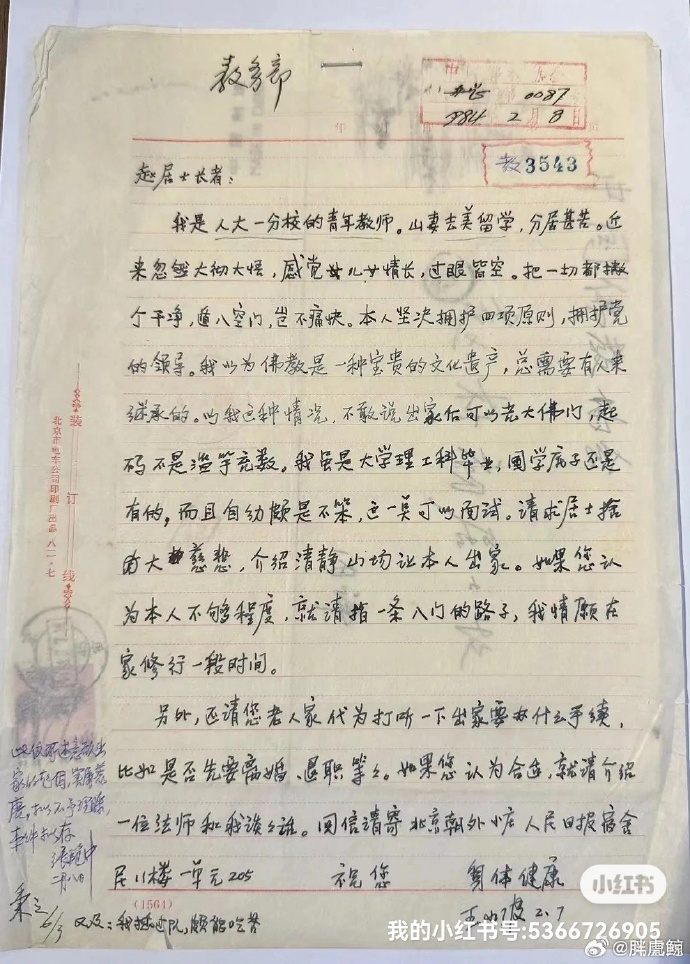 教务部
0087
1984 2 8日
教3543
赵居士长者：
我是人大一分校的青年教师。山妻去美留学，分居甚苦。近
来忽然大彻大悟，感觉儿女情长，过眼皆空。把一切都撇
个干净，遁入空门，岂不痛快。本人坚决拥护四项原则，拥护党
的领导。我以为佛教是一种宝贵的文化遗产，总需要有人来
继承的。以我这种情况，不敢说出家后可以光大佛门，起
码不是滥竽充数。我虽是大学理工科毕业，国学底子还是
有的，而且自幼颇是不笨，这一点可以面试。请求居士
大慈悲，介绍清静山场让本人出家。如果您认
为本人不够程度，就请指一条入门的路子，我情愿在
家修行一段时间。
另外，还请您老人家代为打听一下出家要办什么手续，
比如是否先要离婚、退职等等。如果您认为合适，就请介绍
一位法师和我谈谈。回信请寄北京朝外小庄人民日报宿舍
楼一单元205
祝您 身体健康
王 2.7
又及：我插过队，颇能吃苦
装订线
北京市电车公司印刷厂出品 八一·七
(1564)
二月八日
6/3
小红书
我的小红书号:5366726905
@胖虎鲸